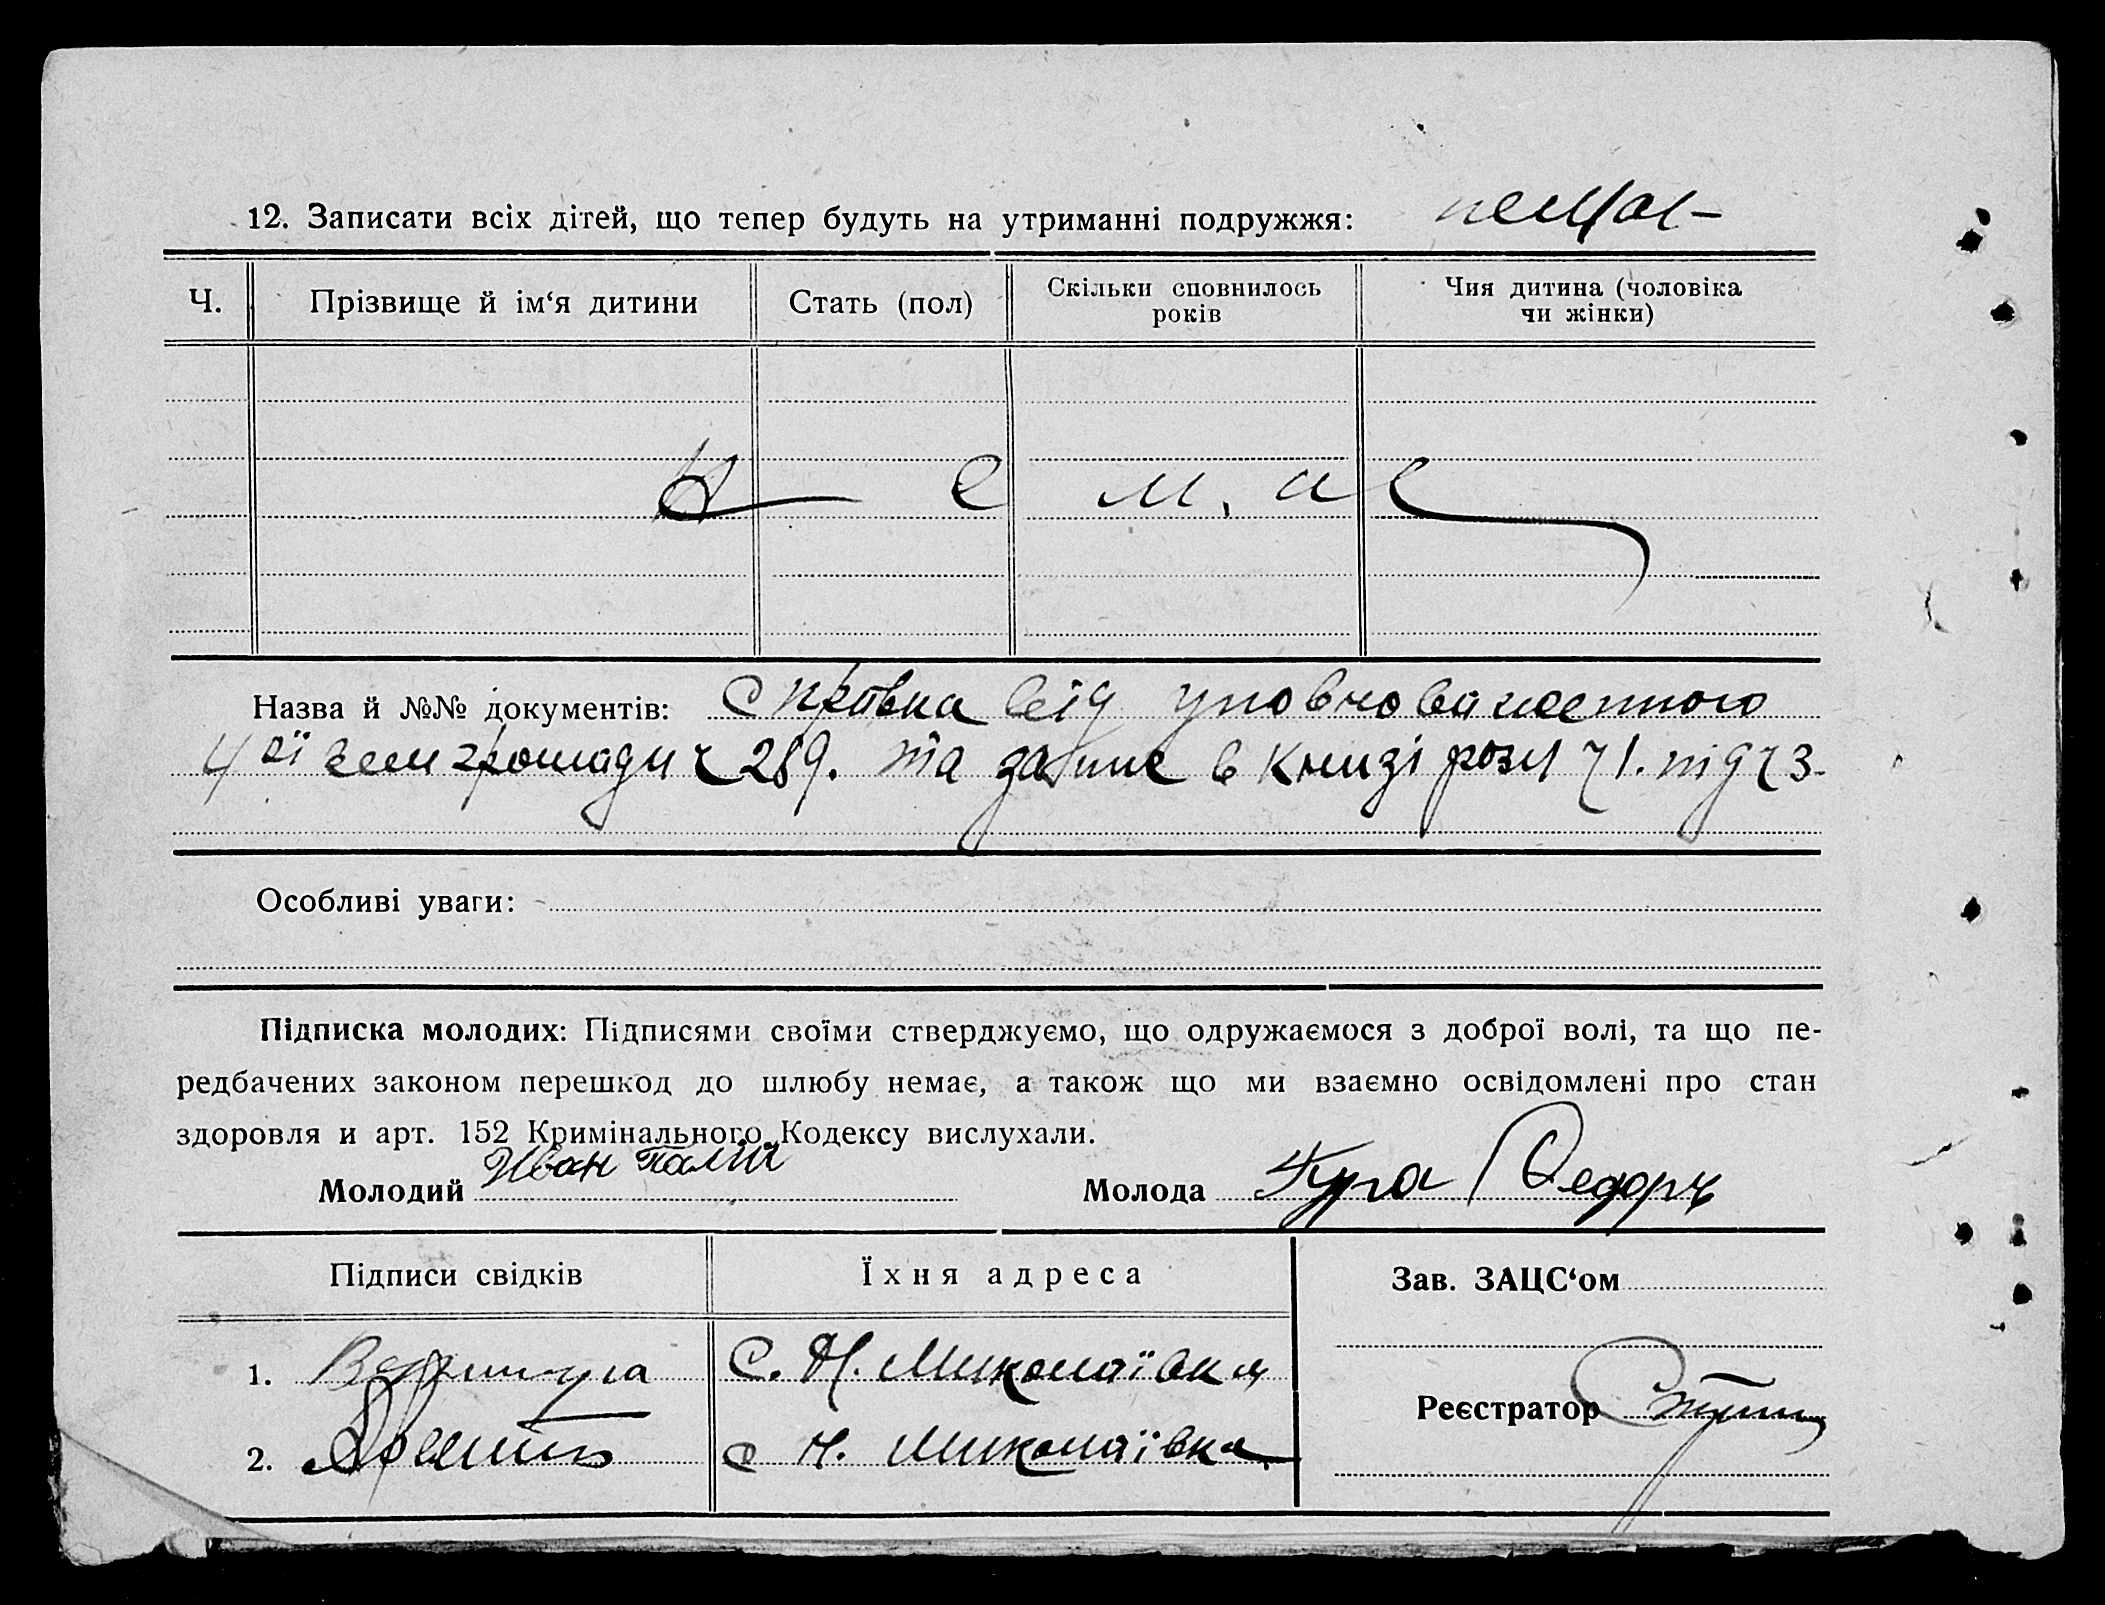 12. Записати всіх дітей, що тепер будуть на утриманні подружжя:
Ч. Прізвище й ім‘я дитини Стать (пол) Скільки сповнилось років Чия дитина (чоловіка чи жінки)
Н е м а є
Назва й №№ документів: Справка від уповноваженного
4 ої зем громади ч 289. та запис в книзі розл ч 1. під ч 3.
Особливі уваги:
Підписка молодих: Підписями своїми стверджуємо, що одружаємося з доброї волі, та що пе-
редбачених законом перешкод до шлюбу немає, а також що ми взаємно освідомлені про стан
здоровля и арт. 152 Кримінального Кодексу вислухали.
Молодий Иван Палій Молода Гура Федора
Підписи свідків Їхня адреса Зав. ЗАЦС‘ом
1. С. Н. Миколаївка
Реєстратор
2. с Н. Миколаївка